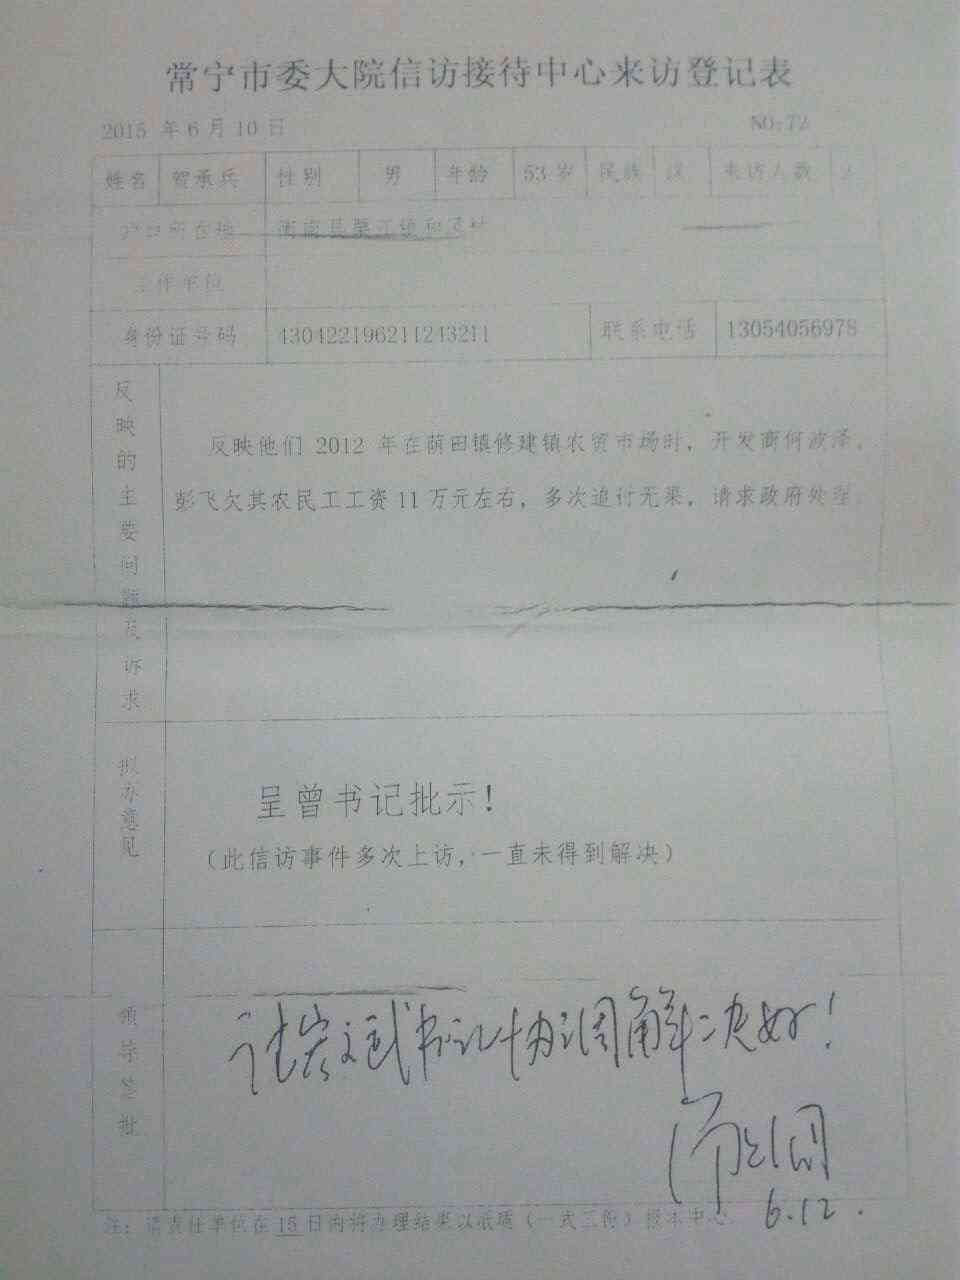 常宁市委大院信访接待中心来访登记表
2015 年 6 月 10 日 NO:72
姓名 贺承兵 性别 男 年龄 53 岁 民族 汉 来访人数 2
户口所在地 衡南县栗江镇
工作单位
身份证号码 430422196211243211 联系电话 13054056978
反映的主要问题及诉求
反映他们 2012 年在荫田镇修建镇农贸市场时，开发商何波泽、
彭飞欠其农民工工资 11 万元左右，多次追讨无果，请求政府处理
拟办意见
呈曾书记批示！
（此信访事件多次上访，一直未得到解决）
领导签批
请 文武书记协调解决好！
6.12.
注：请责任单位在 15 日内将办理结果以纸质（一式三份）报本中心